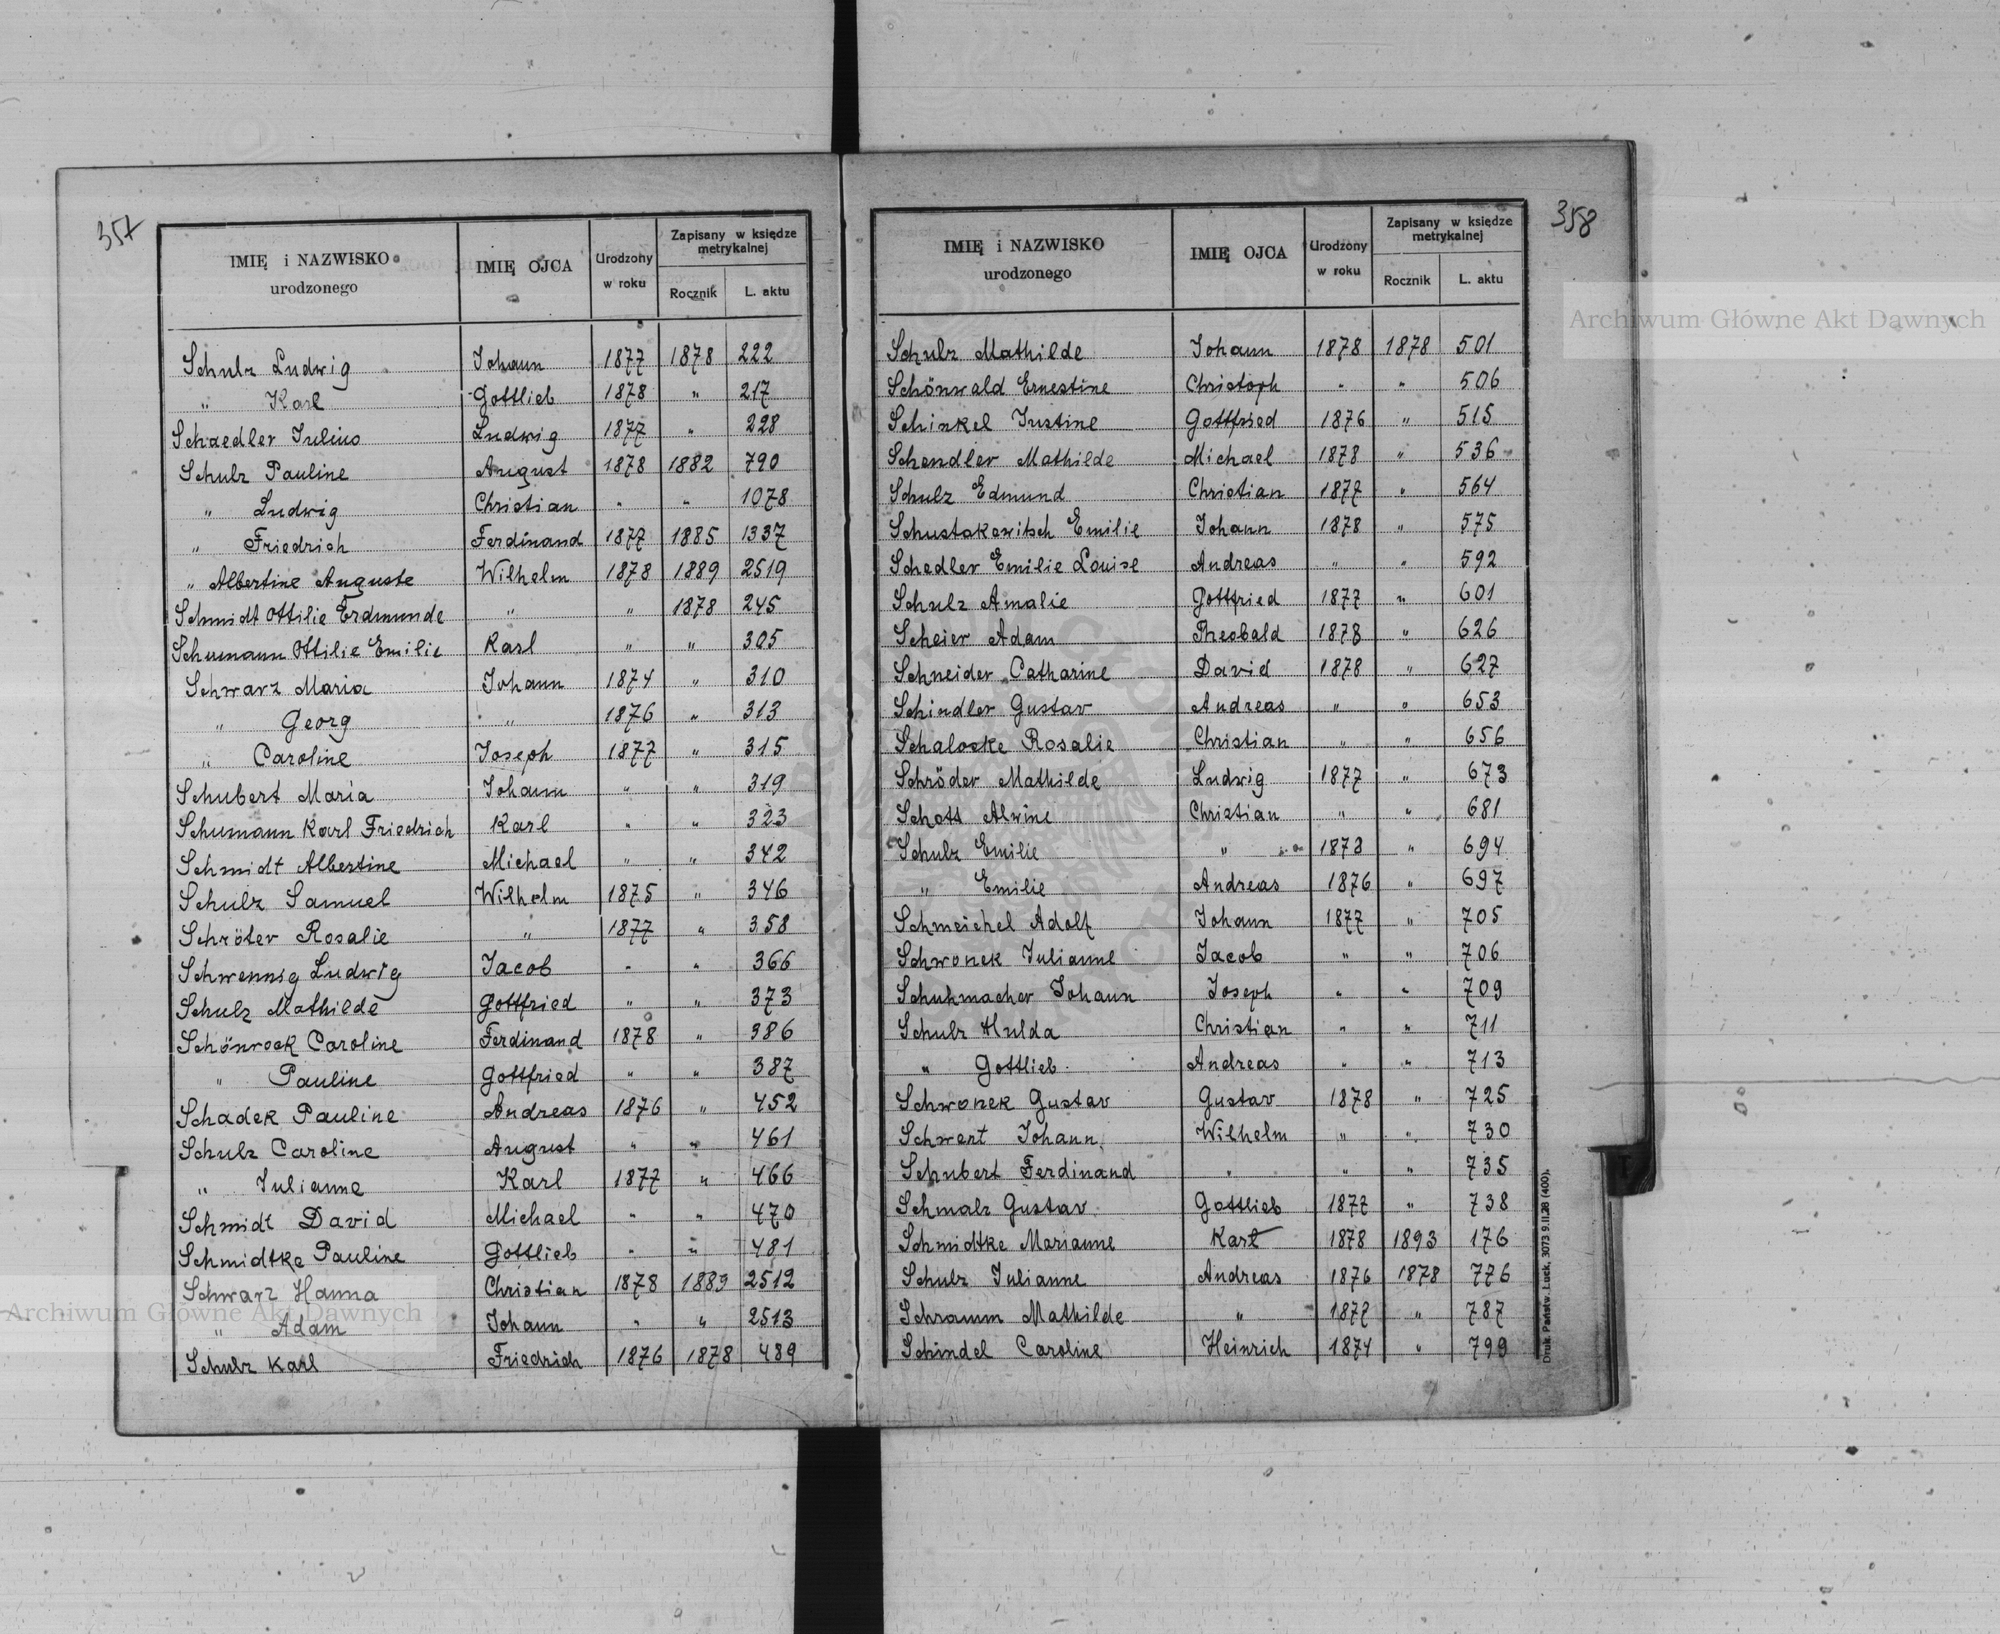 357
IMIĘ i NAZWISKO urodzonego IMIĘ OJCA Urodzony w roku Zapisany w księdze metrykalnej Rocznik L. aktu
Schulz Ludwig Johann 1877 1878 222
" Karl Gottlieb 1878 " 217
Schaedler Julius Ludwig 1877 " 228
Schulz Pauline August 1878 1882 790
" Ludwig Christian " " 1078
" Friedrich Ferdinand 1877 1885 1337
" Albertine Auguste Wilhelm 1878 1889 2519
Schmidt Ottilie Erdmunde " " 1878 245
Schumann Ottilie Emilie Karl " " 305
Schwarz Maria Johann 1874 " 310
" Georg " 1876 " 313
" Caroline Joseph 1877 " 315
Schubert Maria Johann " " 319
Schumann Karl Friedrich Karl " " 323
Schmidt Albertine Michael " " 342
Schulz Samuel Wilhelm 1875 " 346
Schröter Rosalie " 1877 " 358
Schwennig Ludwig Jacob " " 366
Schulz Mathilde Gottfried " " 373
Schönrock Caroline Ferdinand 1878 " 386
" Pauline Gottfried " " 387
Schadek Pauline Andreas 1876 " 452
Schulz Caroline August " " 461
" Julianne Karl 1877 " 466
Schmidt David Michael " " 470
Schmidtke Pauline Gottlieb " " 481
Schwarz Hanna Christian 1878 1889 2512
" Adam Johann " " 2513
Schulz Karl Friedrich 1876 1878 489
358
IMIĘ i NAZWISKO urodzonego IMIĘ OJCA Urodzony w roku Zapisany w księdze metrykalnej Rocznik L. aktu
Schulz Mathilde Johann 1878 1878 501
Schönwald Ernestine Christoph " " 506
Schinkel Justine Gottfried 1876 " 515
Schendler Mathilde Michael 1878 " 536
Schulz Edmund Christian 1877 " 564
Schustakewitsch Emilie Johann 1878 " 575
Schedler Emilie Louise Andreas " " 592
Schulz Amalie Gottfried 1877 " 601
Scheier Adam Theobald 1878 " 626
Schneider Catharine David 1878 " 627
Schindler Gustav Andreas " " 653
Schalocke Rosalie Christian " " 656
Schröder Mathilde Ludwig 1877 " 673
Schott Alwine Christian " " 681
Schulz Emilie " 1878 " 694
" Emilie Andreas 1876 " 697
Schmeichel Adolf Johann 1877 " 705
Schwonek Julianne Jacob " " 706
Schuhmacher Johann Joseph " " 709
Schulz Hulda Christian " " 711
" Gottlieb Andreas " " 713
Schwonek Gustav Gustav 1878 " 725
Schwert Johann Wilhelm " " 730
Schubert Ferdinand " " " 735
Schmalz Gustav Gottlieb 1877 " 738
Schmidtke Marianne Karl 1878 1893 176
Schulz Julianne Andreas 1876 1878 776
Schramm Mathilde " 1877 " 787
Schindel Caroline Heinrich 1874 " 799
Druk. Państw. Łuck, 3073 9.II.28 (400).
Archiwum Główne Akt Dawnych
Archiwum Główne Akt Dawnych